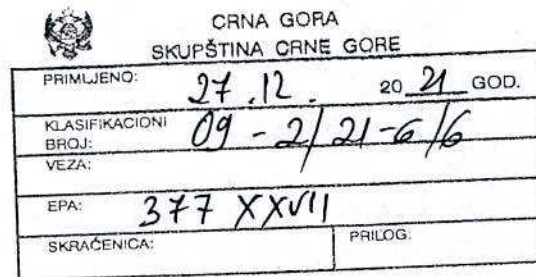 CRNA GORA
SKUPŠTINA CRNE GORE
PRIMLJENO: 27.12. 20 21 GOD.
KLASIFIKACIONI BROJ: 09-2/21-6/6
VEZA:
EPA: 377 XXVII
SKRAĆENICA: PRILOG: